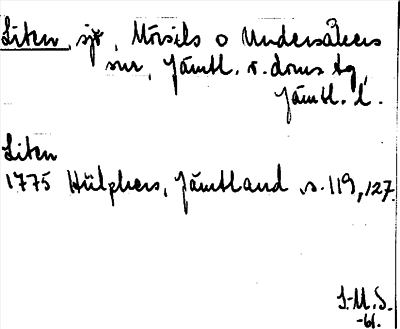 Liten, sjö, Mörsils o Undersåkers
snr, Jämtl. v. doms tg,
Jämtl. l.
Liten
1775 Hülphers, Jämtland s. 119, 127.
I-M.S.
-61.